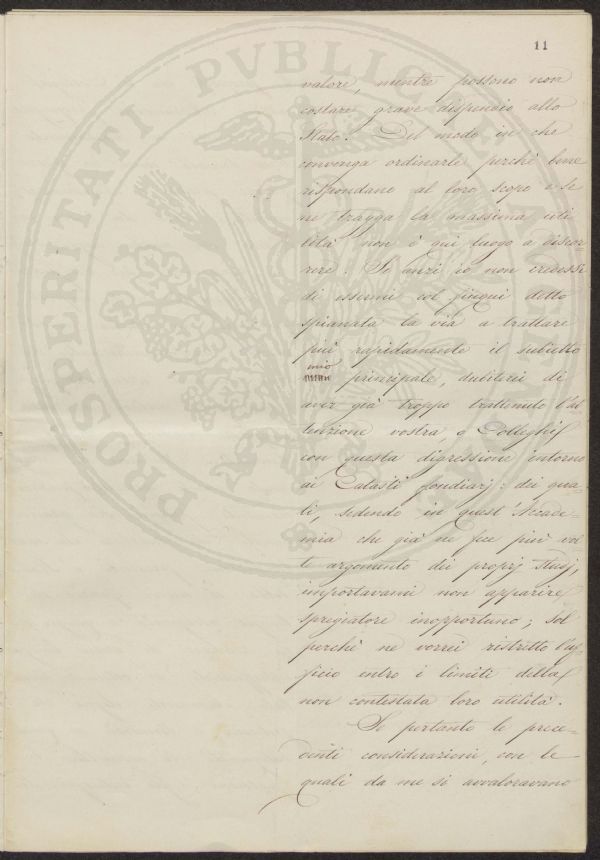 11
valore, mentre possono non
costare grave dispendio allo
Stato. Del modo in che
convenga ordinarli perchè bene
rispondano al loro scopo e se
ne tragga la massima uti
lità non è qui luogo a discor
rere. Se anzi io non credessi
di essermi col finqui detto
spianata la via a trattare
più rapidamente il subietto
mio
principale, dubiterei di
aver già troppo trattenuto l'at
tenzione vostra, o Colleghi
con questa digressione intorno
ai Catasti fondiarj: dei qua-
li, sedendo in quest'Accade-
mia che già ne fece più vol
te argomento dei proprj studj,
importavami non apparire
spregiatore inopportuno; sol
perchè ne vorrei ristretto l'uf
ficio entro i limiti della
non contestata loro utilità.
Se pertanto le prece-
denti considerazioni, con le
quali da me si avvaloravano
PROSPERITATI PVBLICAE AVG